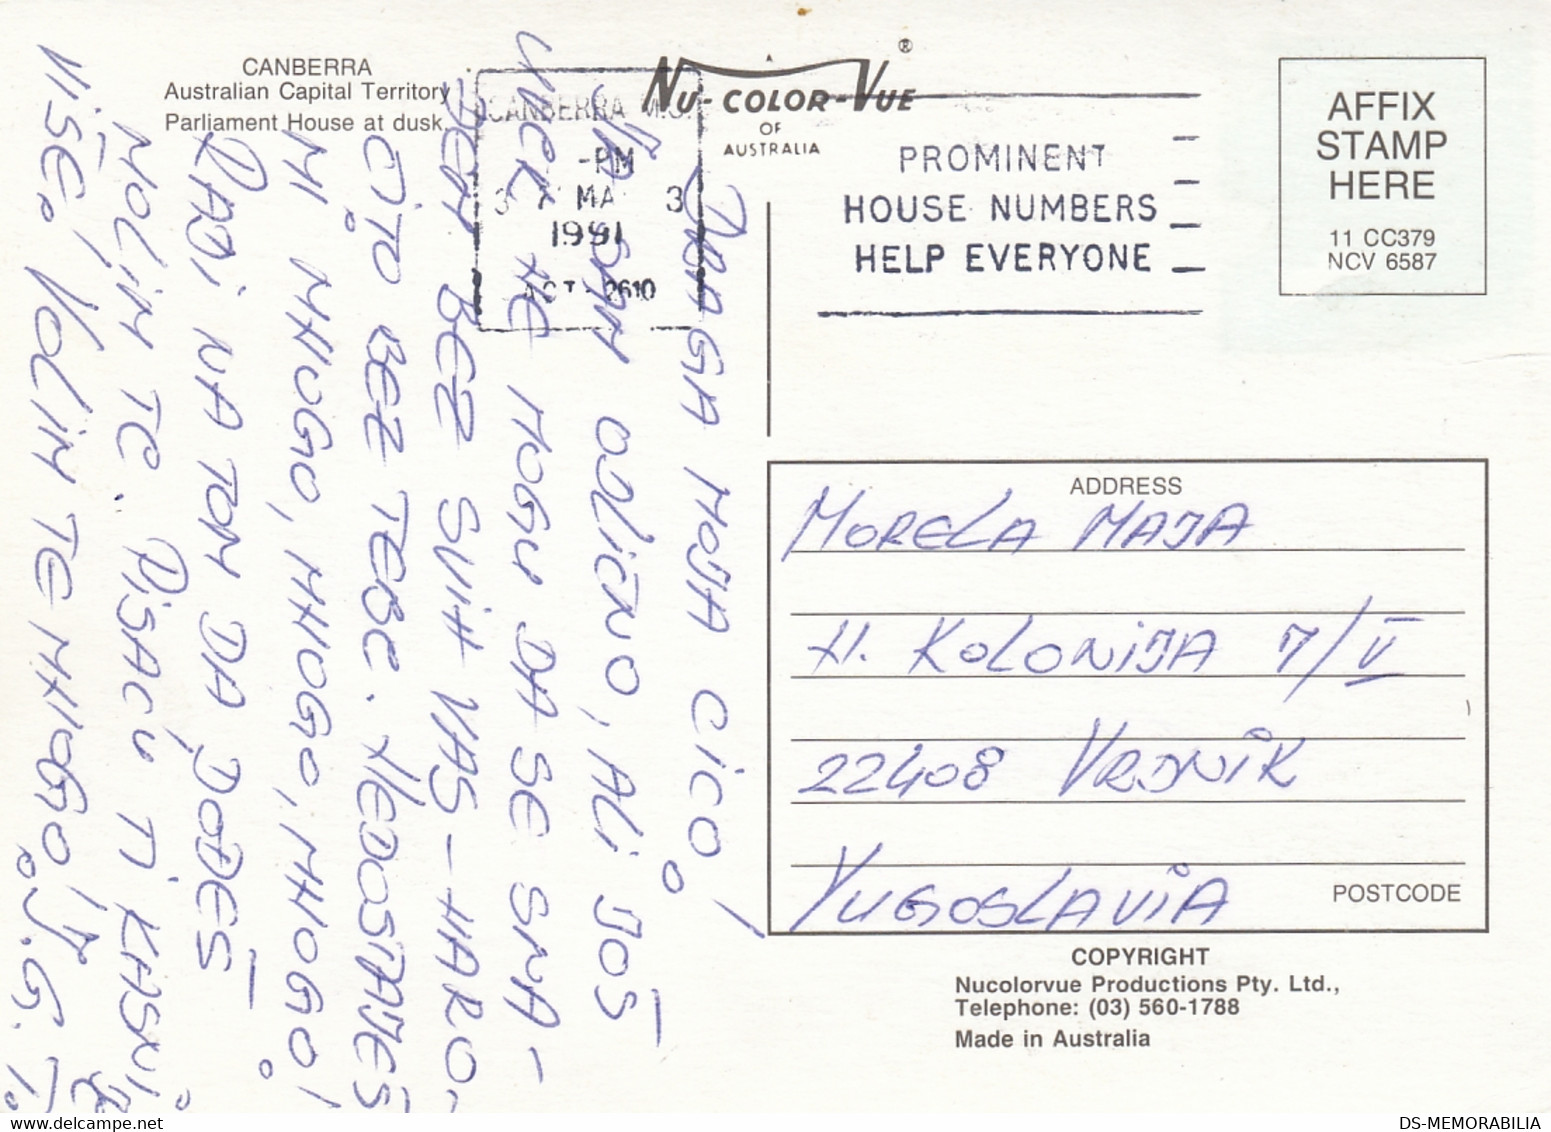 CANBERRA
Australian Capital Territory
Parliament House at dusk.
NU-COLOR-VUE ®
OF
AUSTRALIA
CANBERRA M.C.
-PM
3 7 MA 3
1991
ACT-2610
PROMINENT
HOUSE NUMBERS
HELP EVERYONE
AFFIX
STAMP
HERE
11 CC379
NCV 6587
DRAGA MOJA CICO!
JA SAM ODLIČNO, ALI JOŠ
UVEK NE MOGU DA SE SNA-
ĐEM BEZ SVIH VAS - NARO-
ČITO BEZ TEBE. NEDOSTAJEŠ
MI MNOGO, MNOGO, MNOGO, MNOGO!
RADI NA TOM DA DOĐEŠ
MOLIM TE. PISAĆU TI KASNIJE
VIŠE. VOLIM TE MNOGO!
VOLI TE J.G.
ADDRESS
MORELA MAJA
N. KOLONIJA 7/V
22408 VRDNIK
YUGOSLAVIA
POSTCODE
COPYRIGHT
Nucolorvue Productions Pty. Ltd.,
Telephone: (03) 560-1788
Made in Australia
DS-MEMORABILIA